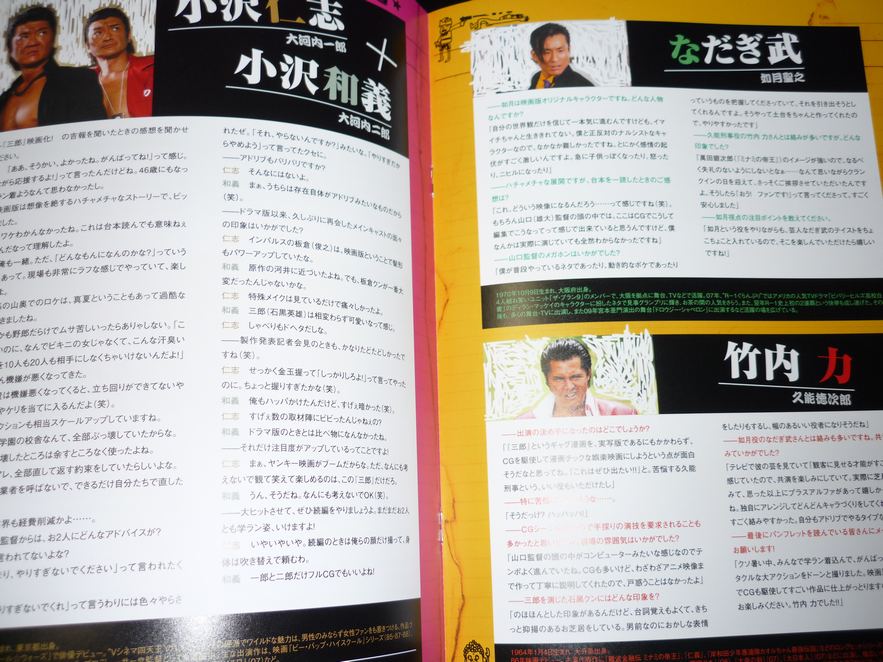 小沢仁志
大河内一郎
×
小沢和義
大河内二郎
「三郎」映画化! の吉報を聞いたときの感想を聞かせ
ださい。
「ああ、そうかい、よかったね。がんばってね!」って感じ。
がら応援するよ!」って言ったんだけどね。46歳にもなっ
ラン着ようなんて思わなかったし。
映画版は想像を絶するハチャメチャなストーリーで、ビッ
ました。
ワケわかんなかったね。これは台本読んでも意味ねぇ
んだなって理解したよ。
俺も一緒。ただ、「どんなもんになんのかな?」っていう
あって。現場も非常にラフな感じでやっていて、楽し
たよ。
の山奥でのロケは、真夏ということもあって過酷な
きましたね。
かも野郎だらけでムサ苦しいったらありゃしない。「こ
いのに、なんでビキニの女じゃなくて、こんな汗臭い
を10人も20人も相手にしなくちゃいけないんだよ!」
ん機嫌が悪くなってきた。
は機嫌悪くなってくると、立ち回りができてないや
やケリを当てに入るんだよ(笑)。
クションも相当スケールアップしていますね。
学園の校舎なんて、全部ぶっ壊していたからな。
壊したところは余すところなく使ったよね。
アレ、全部直して返す約束をしていたらしいよな。
業者を呼ばないで、できるだけ自分たちで直した
界も経費削減かよ……。
監督からは、お2人にどんなアドバイスが?
言われてないよな?
まり、やりすぎないでください」って言われたく
りすぎないでくれ」って言うわりには色々やらさ
れたぜ。「それ、やらないんですか?」みたいな。「やりすぎだか
らやめよう」って言ってたクセに。
――アドリブもバリバリですか?
仁志 そんなにはないよ。
和義 まぁ、うちらは存在自体がアドリブみたいなものだから
(笑)。
――ドラマ版以来、久しぶりに再会したメインキャストの面々
の印象はいかがでした?
仁志 インパルスの板倉(俊之)は、映画版ということで髪形
もパワーアップしていたな。
和義 原作の河井に近づいたよね。でも、板倉クンが一番大
変だったんじゃないかな。
仁志 特殊メイクは見ているだけで痛々しかったよ。
和義 三郎(石黒英雄)は相変わらず可愛いなって感じ。
仁志 しゃべりもドヘタだしな。
――製作発表記者会見のときも、かなりたどたどしかったで
すね(笑)。
仁志 せっかく金玉握って「しっかりしろよ!」って言ってやった
のに。ちょっと握りすぎたかな(笑)。
和義 俺もハッパかけたんだけど、すげぇ暗かった(笑)。
仁志 すげぇ数の取材陣にビビったんじゃねぇの?
和義 ドラマ版のときとは比べ物になんなかったね。
――それだけ注目度がアップしているってことですよ!
仁志 まぁ、ヤンキー映画がブームだからな。ただ、なんも考
えないで観て笑えて楽しめるのは、この「三郎」だけだろ。
和義 うん、そうだね。なんにも考えないでOK(笑)。
――大ヒットさせて、ぜひ続編をやりましょう。まだまだお2人
とも学ラン姿、いけますよ!
仁志 いやいやいや。続編のときは俺らの顔だけ撮って、身
体は吹き替えで頼むわ。
和義 一郎と二郎だけフルCGでもいいよね!
なだぎ武
如月聖之
――如月は映画版オリジナルキャラクターですね。どんな人物
なんですか?
「自分の世界観だけを信じて一本気に進むんですけども、イマ
イチちゃんと生ききれてない。僕と正反対のナルシストなキャ
ラクターなので、なかなか難しかったですね。とにかく感情の起
伏がすごく激しいんですよ。急に子供っぽくなったり、怒った
り、ニヒルになったり」
――ハチャメチャな展開ですが、台本を一読したときのご感
想は?
「これ、どういう映像になるんだろう……って感じですね(笑)。
もちろん山口(雄大)監督の頭の中では、ここはCGでこうして
編集でこうなってって感じで出来ていると思うんですけど、僕
なんかは実際に演じていても全然わからなかったですね」
――山口監督のメガホンはいかがでした?
「僕が普段やっているネタであったり、動き的なボケであったり
っていうものを把握してくださっていて、それを引き出そうとし
てくれるんですよ。そうやって土台をちゃんと作ってくれたの
で、やりやすかったです」
――久能刑事役の竹内 力さんとは絡みが多いですが、どんな
印象でした?
「萬田銀次郎(「ミナミの帝王」)のイメージが強いので、なるべ
く失礼のないようにしないとなぁ……なんて思いながらクラン
クインの日を迎えて、さっそくご挨拶させていただいたんです
よ。そうしたら「おう! ファンです!」って言ってくださって。すごく
安心しました」
――如月視点の注目ポイントを教えてください。
「如月という役をやりながらも、芸人なだぎ武のテイストをちょ
こちょこと入れているので、そこを楽しんでいただけたら嬉しい
ですね!」
1970年10月9日生まれ、大阪府出身。
竹内 力
久能徳次郎
――出演の決め手になったのはどこでしょう?
「「三郎」というギャグ漫画を、実写版であるにもかかわらず、
CGを駆使して漫画チックな娯楽映画にしようという点が面白
そうだなと思ってね。「これはぜひ出たい!!」と。苦悩する久能
刑事という、いい役もいただけたし」
「そうだっけ? ハッハッハ!」
「山口監督の頭の中がコンピューターみたいな感じなのでテン
ポよく進んでいたね。CGも多いけど、わざわざアニメ映像ま
で作って丁寧に説明してくれたので、戸惑うことはなかったよ」
――三郎を演じた石黒クンにはどんな印象を?
「のほほんとした印象があるんだけど、台詞覚えもよくて、きち
っと抑揚のあるお芝居をしている。男前なのにおかしな表情
をしたりもするし、幅のあるいい役者になりそうだね」
――如月役のなだぎ武さんとも絡みも多いですね。共
みていかがでした?
「テレビで彼の芸を見ていて「観客に見せる才能がす
感じていたので、共演を楽しみにしていて。実際に芝
みて、思った以上にプラスアルファがあって嬉しか
ね。独自にアレンジしてどんどんキャラづくりをしてくれ
すごく絡みやすかった。自分もアドリブでやるタイプな
――最後にパンフレットを読んでいる皆さんにメッ
お願いします!
「クソ暑い中、みんなで学ラン着込んで、がんばっ
タクルな大アクションをドーンと撮りました。映画
でCGも駆使してすごい作品に仕上がっとります
お楽しみください。竹内 力でした!!」
1964年1月4日生まれ、大分県出身。